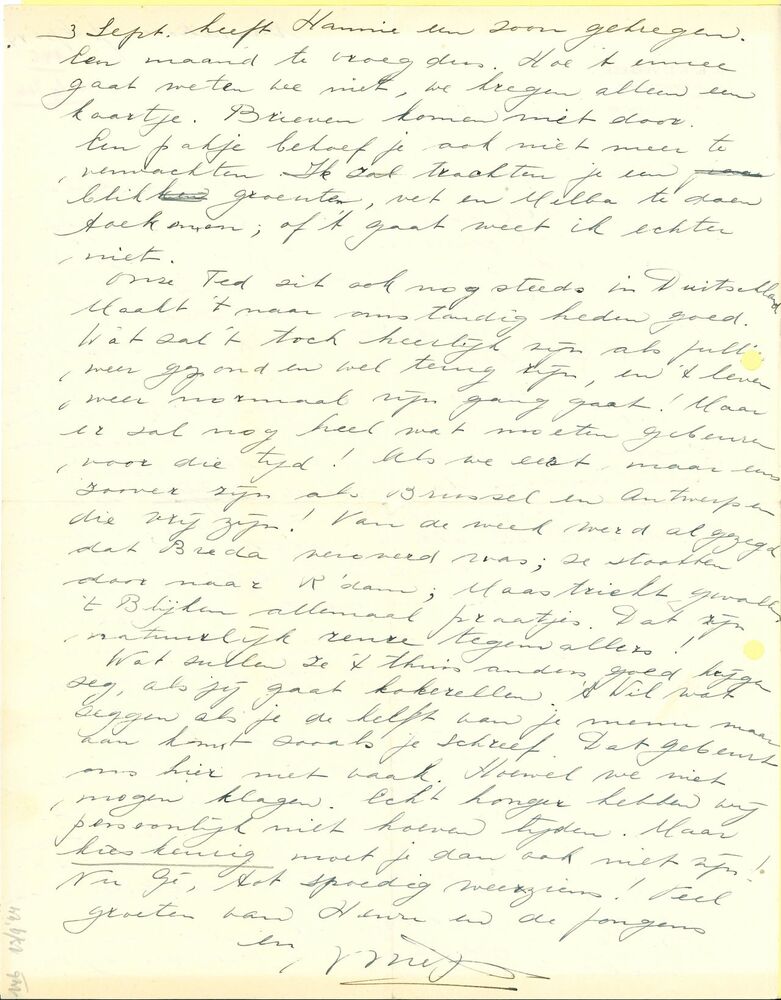 3 Sept. heeft Hannie een zoon gekregen.
Een maand te vroeg dus. Hoe 't ermee
gaat weten we niet, we kregen alleen een
kaartje. Brieven komen niet door.
Een pakje behoef je ook niet meer te
verwachten. Ik zal trachten je een
blik groenten, vet en Melba te doen
toekomen; of 't gaat weet ik echter
niet.
Onze Ted zit ook nog steeds in Duitschland
Maakt 't naar omstandigheden goed.
Wat zal 't toch heerlijk zijn als jullie
weer gezond en wel terug zijn, en 't leven
weer normaal zijn gang gaat! Maar
er zal nog heel wat moeten gebeuren
voor die tijd! Als we eerst maar eens
zoover zijn als Brussel en Antwerpen
die vrij zijn! Van de week werd al gezegd
dat Breda veroverd was; ze stootten
door naar R'dam; Maastricht gevallen
't Blijken allemaal praatjes. Dat zijn
natuurlijk reuze tegenvallers!
Wat zullen ze 't thuis anders goed krijgen
zeg, als jij gaat kokerellen. 't Wil wat
zeggen als je de helft van je menu maar
aan komt zooals je schreef. Dat gebeurt
ons hier niet vaak. Hoewel we niet
mogen klagen. Echt honger hebben wij
persoonlijk niet hoeven lijden. Maar
kieskeurig moet je dan ook niet zijn!
Nu Gé, tot spoedig weerziens! Veel
groeten van Henri en de jongens
en
146 17/9 '44